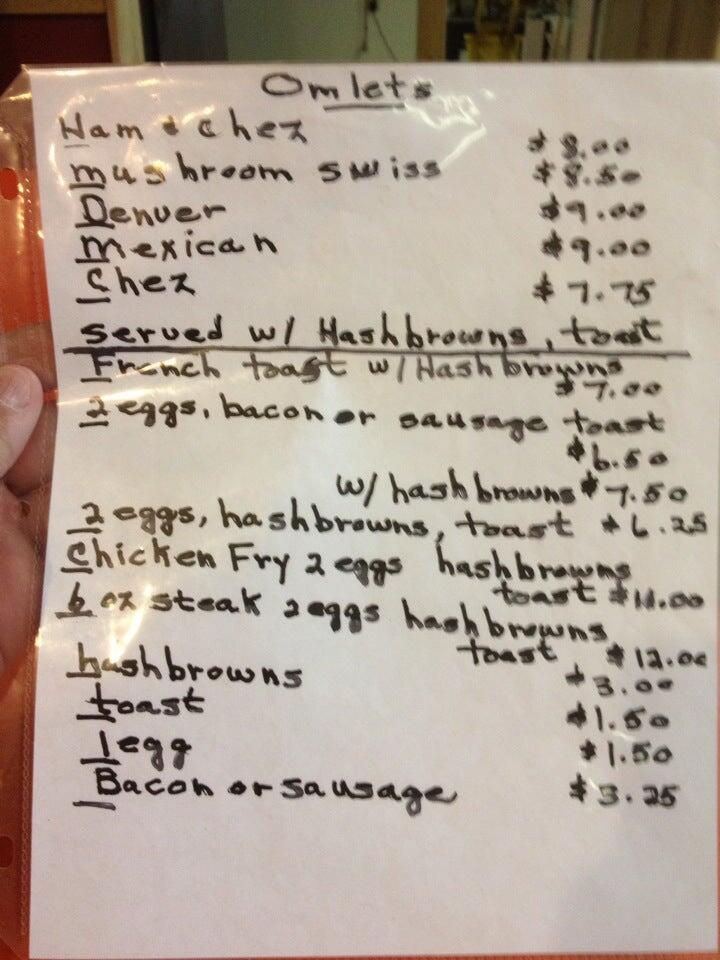 Omlets
Ham & chez $8.00
mushroom swiss $8.50
Denver $9.00
mexican $9.00
Chez $7.75
served w/ Hashbrowns, toast
French toast w/ Hashbrowns
$7.00
2 eggs, bacon or sausage toast
$6.50
w/ hashbrowns $7.50
2 eggs, hashbrowns, toast $6.25
Chicken Fry 2 eggs hashbrowns
toast $11.00
6 oz steak 2 eggs hashbrowns
toast $12.00
hashbrowns $3.00
toast $1.50
1 egg $1.50
Bacon or sausage $3.25